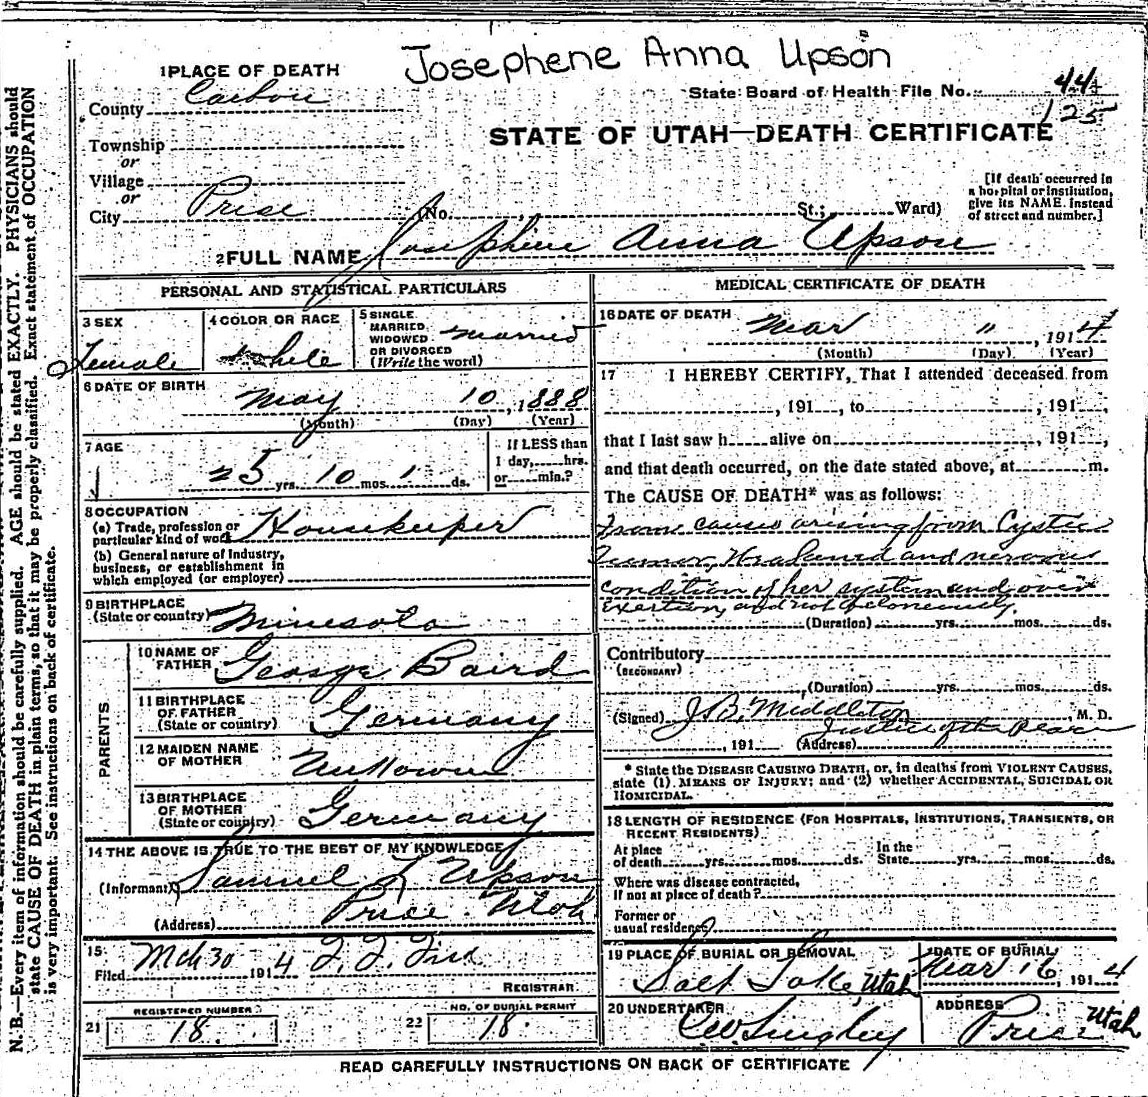 Josephene Anna Upson
1 PLACE OF DEATH
County Carbon
State Board of Health File No. 44
125
STATE OF UTAH—DEATH CERTIFICATE
Township
or
Village
or
City Price (No. , St.; Ward)
[If death occurred in a hospital or institution, give its NAME. Instead of street and number.]
2 FULL NAME Josephine Anna Upson
PERSONAL AND STATISTICAL PARTICULARS
3 SEX
Female
4 COLOR OR RACE
White
5 SINGLE
MARRIED
WIDOWED
OR DIVORCED
(Write the word)
Married
6 DATE OF BIRTH
May 10, 1888
(Month) (Day) (Year)
7 AGE
25 yrs. 10 mos. 1 ds.
If LESS than
1 day, hrs.
or min.?
8 OCCUPATION
(a) Trade, profession or
particular kind of work Housekeeper
(b) General nature of Industry,
business, or establishment in
which employed (or employer)
9 BIRTHPLACE
(State or country) Minesota
PARENTS
10 NAME OF
FATHER George Baird
11 BIRTHPLACE
OF FATHER
(State or country) Germany
12 MAIDEN NAME
OF MOTHER
13 BIRTHPLACE
OF MOTHER
(State or country) Germany
14 THE ABOVE IS TRUE TO THE BEST OF MY KNOWLEDGE
(Informant) Samuel L Upson
(Address) Price Utah
15
Filed Mch 30 1914
REGISTRAR
21 REGISTERED NUMBER
18.
22 NO. OF BURIAL PERMIT
18
MEDICAL CERTIFICATE OF DEATH
16 DATE OF DEATH
Mar 11, 1914
(Month) (Day) (Year)
17 I HEREBY CERTIFY, That I attended deceased from
, 191 , to , 191 ,
that I last saw h alive on , 191 ,
and that death occurred, on the date stated above, at m.
The CAUSE OF DEATH* was as follows:
From causes arising from Cystic
Tumor, Weakened and nervous
condition of her system and over
Exertion, and not feloneously.
(Duration) yrs. mos. ds.
Contributory
(SECONDARY)
(Duration) yrs. mos. ds.
(Signed) J.B. Middleton, M. D.
, 191 (Address) Justice of the Peace
* State the DISEASE CAUSING DEATH, or, in deaths from VIOLENT CAUSES,
state (1) MEANS OF INJURY; and (2) whether ACCIDENTAL, SUICIDAL OR
HOMICIDAL.
18 LENGTH OF RESIDENCE (FOR HOSPITALS, INSTITUTIONS, TRANSIENTS, OR
RECENT RESIDENTS)
At place
of death yrs. mos. ds.
In the
State yrs. mos. ds.
Where was disease contracted,
if not at place of death?
Former or
usual residence
19 PLACE OF BURIAL OR REMOVAL
Salt Lake, Utah
DATE OF BURIAL
Mar 16, 1914
20 UNDERTAKER
ADDRESS
Price Utah
READ CAREFULLY INSTRUCTIONS ON BACK OF CERTIFICATE
N.B.—Every item of information should be carefully supplied. AGE should be stated EXACTLY. PHYSICIANS should
state CAUSE OF DEATH in plain terms, so that it may be properly classified. Exact statement of OCCUPATION
is very important. See instructions on back of certificate.